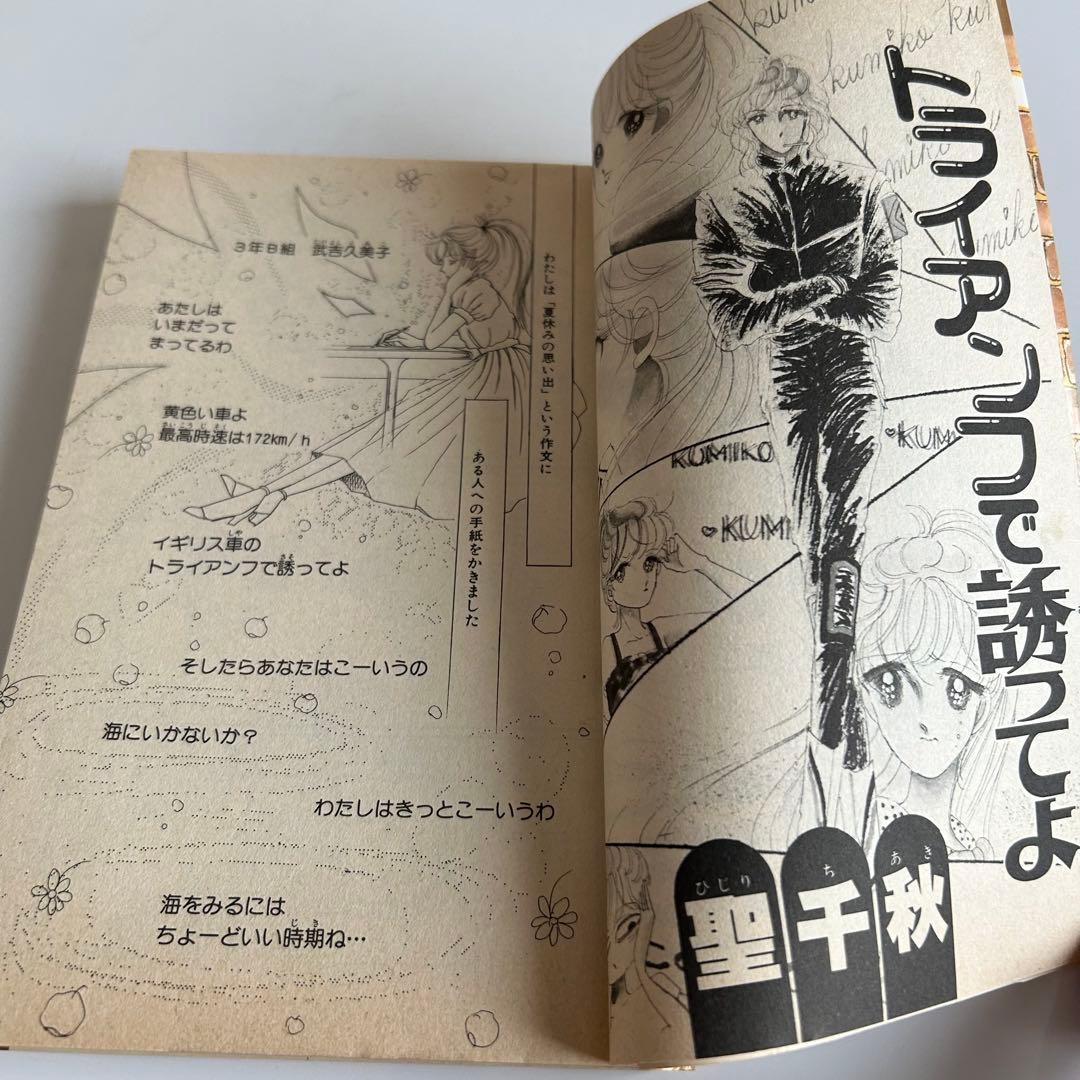 トライアンフで誘ってよ
ひじり ち あき
聖千秋
kumiko
kumiko
kumiko
KUMIKO
KUMI
KUMI
わたしは「夏休みの思い出」という作文に
ある人への手紙をかきました
3年B組 武吉久美子
あたしは
いまだって
まってるわ
黄色い車よ
さいこうじそく
最高時速は172km/h
しゃ さそ
イギリス車の
トライアンフで誘ってよ
そしたらあなたはこーいうの
海にいかないか？
わたしはきっとこーいうわ
海をみるには
じき
ちょーどいい時期ね…